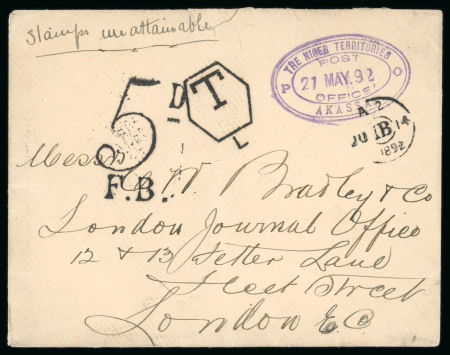 Stamps unattainable
THE NIGER TERRITORIES
POST
P 27 MAY.92 O
OFFICE
AKASSA
5D
T
L
F.B.
A 2
JU IB 14
1892
Messrs C W Bradley & Co
London Journal Office
12 & 13 Fetter Lane
Fleet Street
London E.C